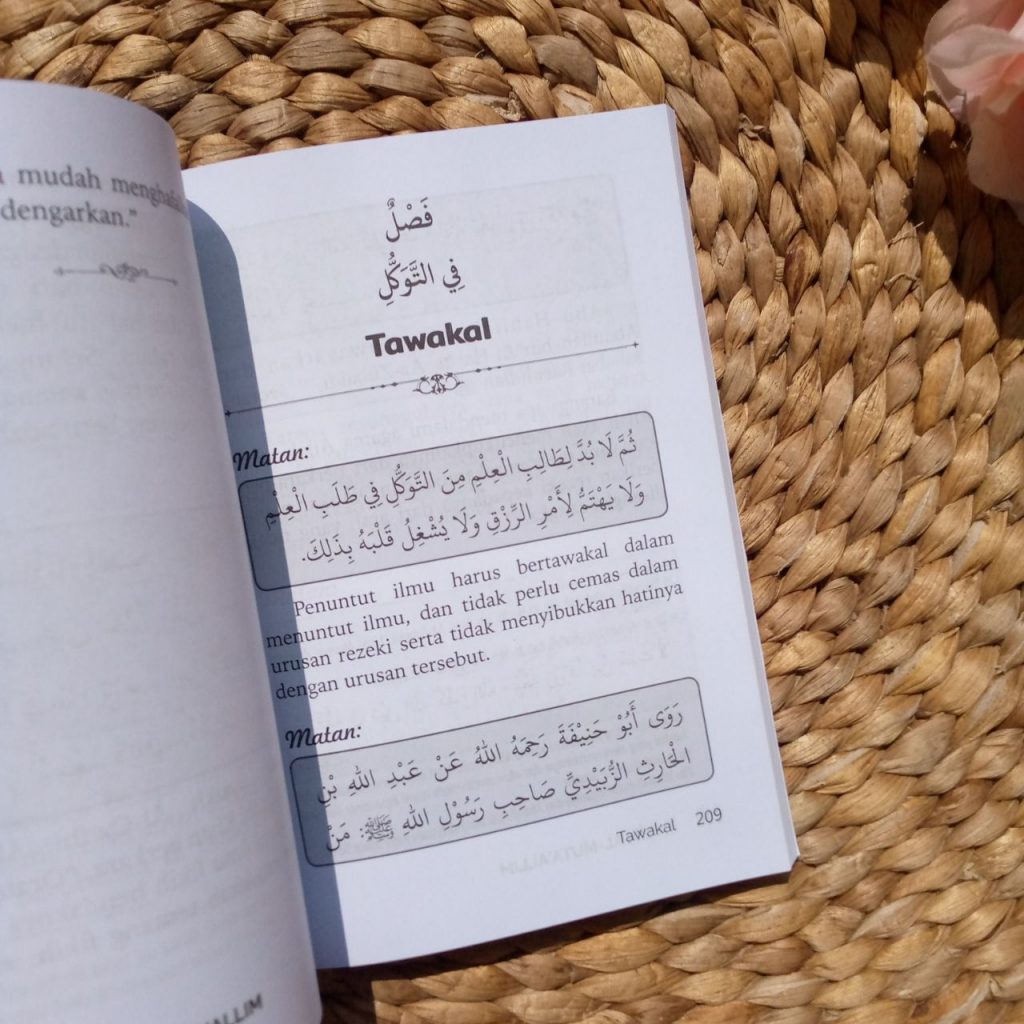 mudah menghafal
dengarkan."
فَصْلٌ
فِي التَّوَكُّلِ
Tawakal
Matan:
ثُمَّ لَا بُدَّ لِطَالِبِ الْعِلْمِ مِنَ التَّوَكُّلِ فِي طَلَبِ الْعِلْمِ
وَلَا يَهْتَمُّ لِأَمْرِ الرِّزْقِ وَلَا يُشْغِلُ قَلْبَهُ بِذَلِكَ.
Penuntut ilmu harus bertawakal dalam
menuntut ilmu, dan tidak perlu cemas dalam
urusan rezeki serta tidak menyibukkan hatinya
dengan urusan tersebut.
Matan:
رَوَى أَبُوْ حَنِيْفَةَ رَحِمَهُ اللهُ عَنْ عَبْدِ اللهِ بْنِ
الْحَارِثِ الزُّبَيْدِيِّ صَاحِبِ رَسُوْلِ اللهِ ﷺ: مَنْ
Tawakal 209